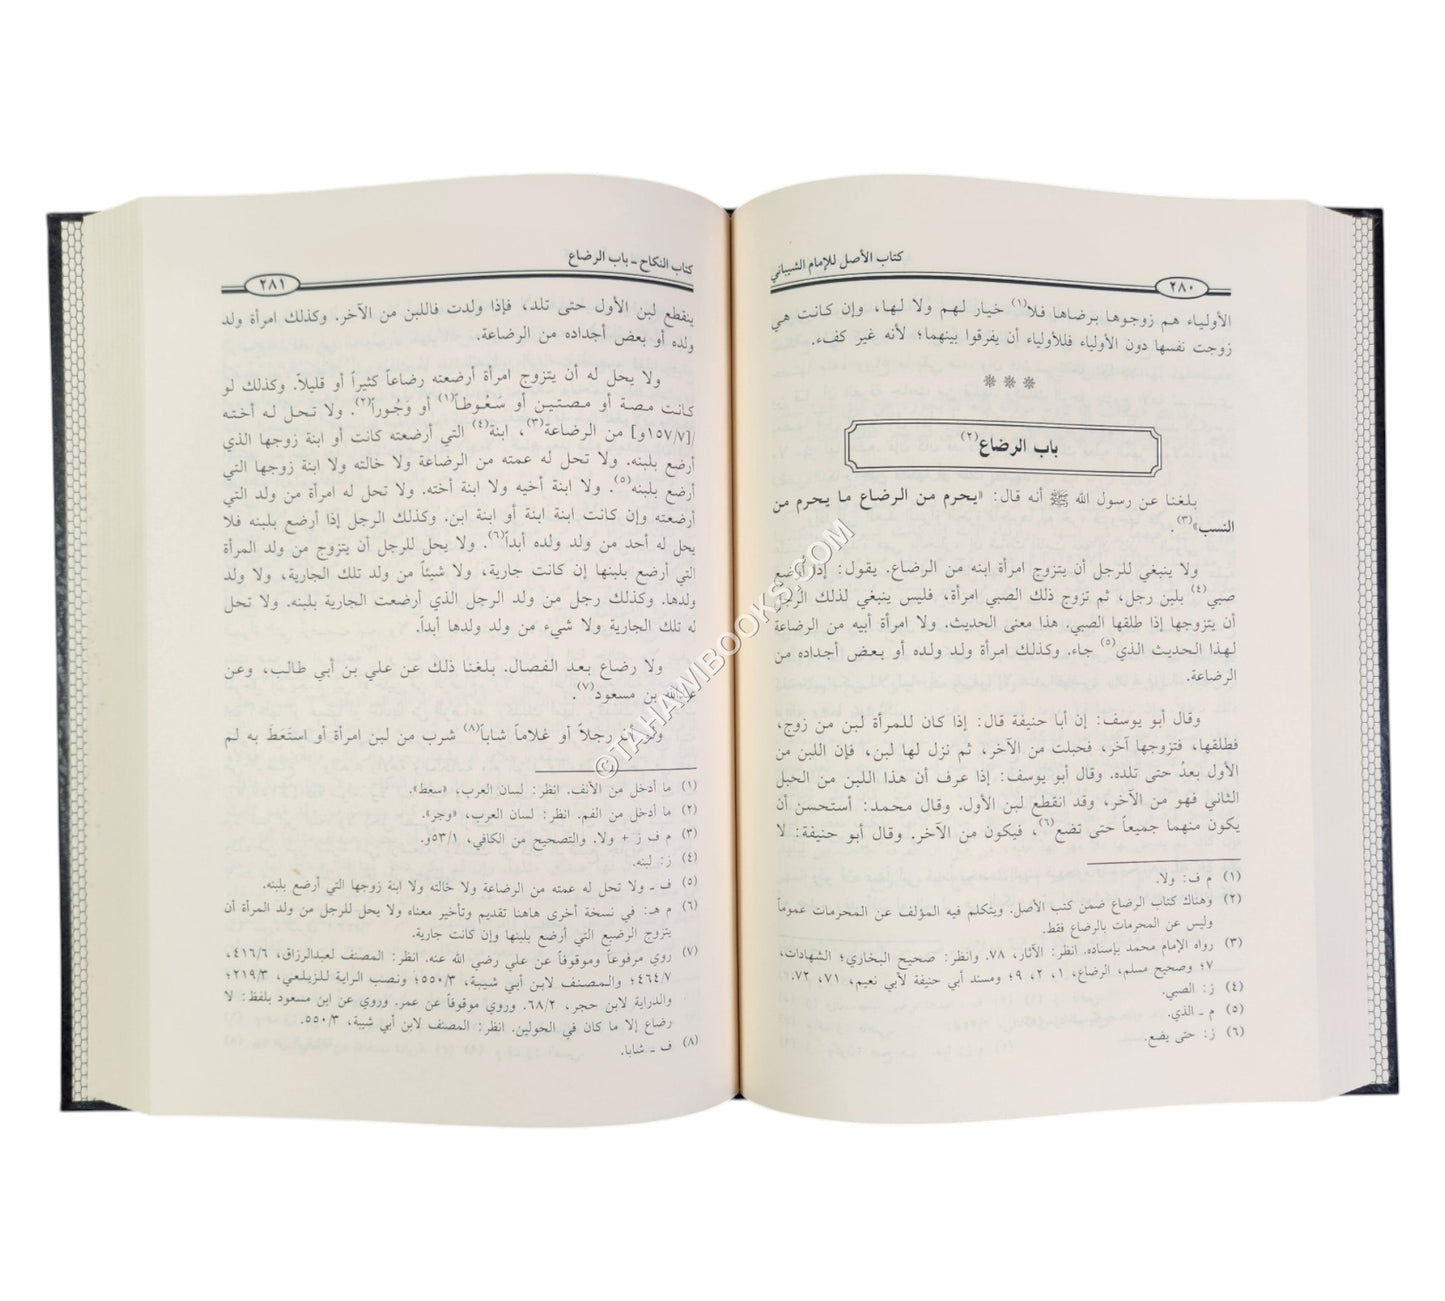 كتاب الأصل للإمام الشيباني
٢٨٠
الأولياء هم زوجوها برضاها فلا(١) خيار لهم ولا لها، وإن كانت هي
زوجت نفسها دون الأولياء فللأولياء أن يفرقوا بينهما؛ لأنه غير كفء.
❊ ❊ ❊
باب الرضاع(٢)
بلغنا عن رسول الله ﷺ أنه قال: «يحرم من الرضاع ما يحرم من
النسب»(٣).
ولا ينبغي للرجل أن يتزوج امرأة ابنه من الرضاع. يقول: إذا أرضع
صبي(٤) بلبن رجل، ثم تزوج ذلك الصبي امرأة، فليس ينبغي لذلك الرجل
أن يتزوجها إذا طلقها الصبي. هذا معنى الحديث. ولا امرأة أبيه من الرضاعة
لهذا الحديث الذي(٥) جاء. وكذلك امرأة ولد ولده أو بعض أجداده من
الرضاعة.
وقال أبو يوسف: إن أبا حنيفة قال: إذا كان للمرأة لبن من زوج،
فطلقها، فتزوجها آخر، فحبلت من الآخر، ثم نزل لها لبن، فإن اللبن من
الأول بعدُ حتى تلده. وقال أبو يوسف: إذا عرف أن هذا اللبن من الحبل
الثاني فهو من الآخر، وقد انقطع لبن الأول. وقال محمد: أستحسن أن
يكون منهما جميعاً حتى تضع(٦)، فيكون من الآخر. وقال أبو حنيفة: لا
(١) م ف: ولا.
(٢) وهناك كتاب الرضاع ضمن كتب الأصل. ويتكلم فيه المؤلف عن المحرمات عموماً
وليس عن المحرمات بالرضاع فقط.
(٣) رواه الإمام محمد بإسناده. انظر: الآثار، ٧٨. وانظر: صحيح البخاري؛ الشهادات،
٧؛ وصحيح مسلم، الرضاع، ١، ٢، ٩؛ ومسند أبي حنيفة لأبي نعيم، ٧١، ٧٢.
(٤) ز: الصبي.
(٥) م ـ الذي.
(٦) ز: حتى يضع.
كتاب النكاح ـ باب الرضاع
٢٨١
ينقطع لبن الأول حتى تلد، فإذا ولدت فاللبن من الآخر. وكذلك امرأة ولد
ولده أو بعض أجداده من الرضاعة.
ولا يحل له أن يتزوج امرأة أرضعته رضاعاً كثيراً أو قليلاً. وكذلك لو
كانت مصة أو مصتين أو سَعُوطاً(١) أو وَجُوراً(٢). ولا تحل له أخته
/[١٥٧/٧و] من الرضاعة(٣)، ابنة(٤) التي أرضعته كانت أو ابنة زوجها الذي
أرضع بلبنه. ولا تحل له عمته من الرضاعة ولا خالته ولا ابنة زوجها التي
أرضع بلبنه(٥). ولا ابنة أخيه ولا ابنة أخته. ولا تحل له امرأة من ولد التي
أرضعته وإن كانت ابنة ابنة أو ابنة ابن. وكذلك الرجل إذا أرضع بلبنه فلا
يحل له أحد من ولد ولده أبداً(٦). ولا يحل للرجل أن يتزوج من ولد المرأة
التي أرضع بلبنها إن كانت جارية، ولا شيئاً من ولد تلك الجارية، ولا ولد
ولدها. وكذلك رجل من ولد الرجل الذي أرضعت الجارية بلبنه. ولا تحل
له تلك الجارية ولا شيء من ولد ولدها أبداً.
ولا رضاع بعد الفصال. بلغنا ذلك عن علي بن أبي طالب، وعن
عبدالله بن مسعود(٧).
ولو أن رجلاً أو غلاماً شاباً(٨) شرب من لبن امرأة أو استَعَطَ به لم
(١) ما أدخل من الأنف. انظر: لسان العرب، «سعط».
(٢) ما أدخل من الفم. انظر: لسان العرب، «وجر».
(٣) م ف ز + ولا. والتصحيح من الكافي، ٥٣/١و.
(٤) ز: لبنه.
(٥) ف ـ ولا تحل له عمته من الرضاعة ولا خالته ولا ابنة زوجها التي أرضع بلبنه.
(٦) م هـ: في نسخة أخرى هاهنا تقديم وتأخير معناه ولا يحل للرجل من ولد المرأة أن
يتزوج الرضيع التي أرضع بلبنها وإن كانت جارية.
(٧) روي مرفوعاً وموقوفاً عن علي رضي الله عنه. انظر: المصنف لعبدالرزاق، ٤١٦/٦،
٤٦٤/٧؛ والمصنف لابن أبي شيبة، ٥٥٠/٣؛ ونصب الراية للزيلعي، ٢١٩/٣؛
والدراية لابن حجر، ٦٨/٢. وروي موقوفاً عن عمر. وروي عن ابن مسعود بلفظ: لا
رضاع إلا ما كان في الحولين. انظر: المصنف لابن أبي شيبة، ٥٥٠/٣.
(٨) ف ـ شابا.
©TAHAWIBOOKS.COM